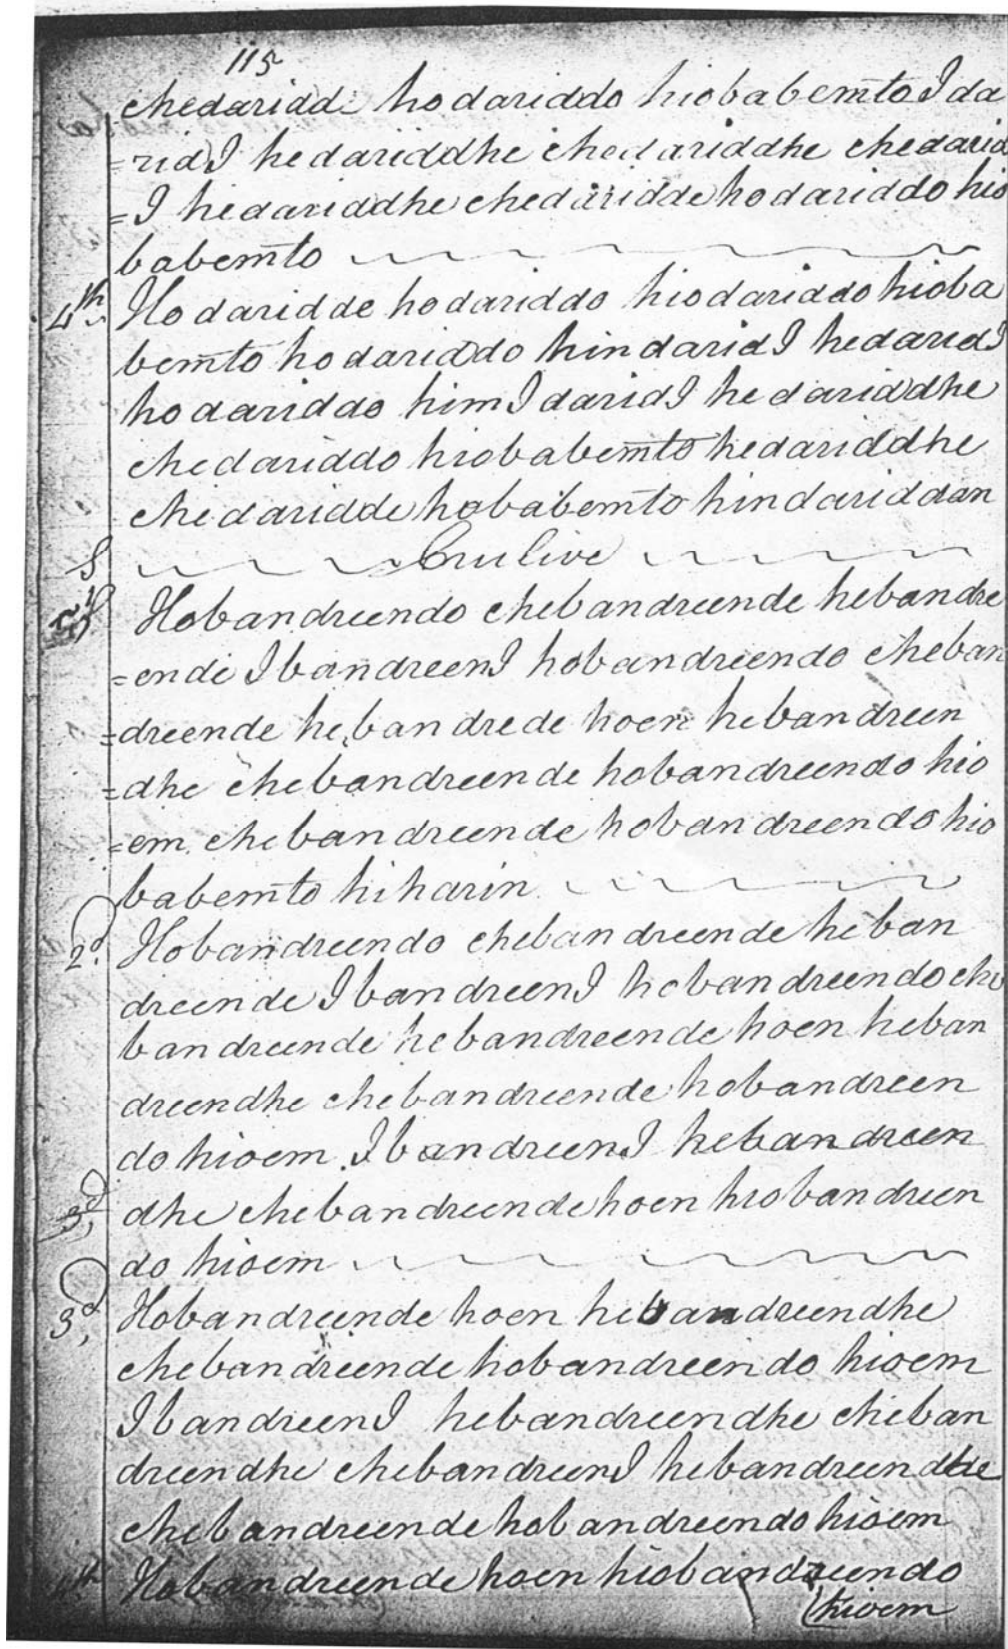 115
chedaridd hodariddo hiobabemto I da
=rid I hedariddhe chedariddhe chedarid
=I hedariddhe chedaridde hodariddo hio
babemto
4th Hodaridde hodariddo hiodariddo hioba
bemto hodariddo hindarid I hedarid I
hodariddo him I darid I hedariddhe
chedariddo hiobabemto hedariddhe
chedaridde hobabemto hindariddan
S Crulive
Hobandreendo chebandreende hebandre
=ende I bandreen I hobandreendo cheban
=dreende hebandrede hoen hebandreen
=dhe chebandreende hobandreendo hio
=em chebandreende hobandreendo hio
babemto hiharin
2d. Hobandreendo chebandreende heban
dreende I bandreen I hobandreendo che
bandreende hebandreende hoen heban
dreendhe chebandreende hobandreen
do hioem I bandreen I hebandreen
3d, dhe chebandreende hoen hiobandreen
do hioem
3d, Hobandreende hoen hebandreendhe
chebandreende hobandreendo hioem
I bandreen I hebandreendhe cheban
dreendhe chebandreen I hebandreendhe
chebandreende hobandreendo hioem
4th Hobandreende hoen hiobandreendo
hioem